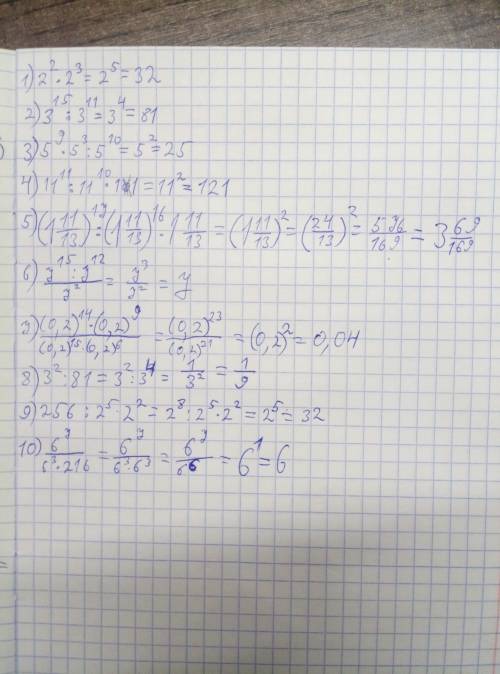 1) 2² · 2³ = 2⁵ = 32
2) 3¹⁵ : 3¹¹ = 3⁴ = 81
3) 5⁹ · 5³ : 5¹⁰ = 5² = 25
4) 11¹¹ : 11¹⁰ · 11 = 11² = 121
5) (1 11/13)¹⁷ : (1 11/13)¹⁶ · 1 11/13 = (1 11/13)² = (24/13)² = 576/169 = 3 69/169
6) (y¹⁵ : y¹²)/y² = y³/y² = y
7) ((0,2)¹⁴ · (0,2)⁹)/((0,2)¹⁵ · (0,2)⁶) = (0,2)²³/(0,2)²¹ = (0,2)² = 0,04
8) 3² : 81 = 3² : 3⁴ = 1/3² = 1/9
9) 256 : 2⁵ · 2² = 2⁸ : 2⁵ · 2² = 2⁵ = 32
10) 6⁷/(6³ · 216) = 6⁷/(6³ · 6³) = 6⁷/6⁶ = 6¹ = 6